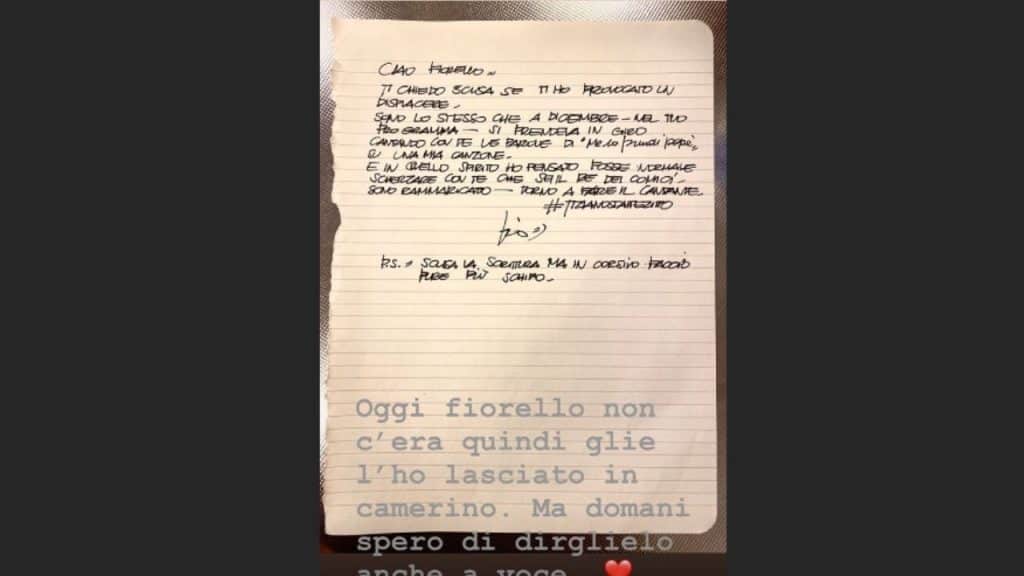 CIAO FIORELLO -
TI CHIEDO SCUSA SE TI HO PROVOCATO UN
DISPIACERE -
SONO LO STESSO CHE A DICEMBRE - NEL TUO
PROGRAMMA - SI PRENDEVA IN GIRO
CANTANDO CON TE LE PAROLE DI "Me lo prendi papà"
SU UNA MIA CANZONE -
E IN QUELLO SPIRITO HO PENSATO FOSSE NORMALE
SCHERZARE CON TE CHE SEI IL RE DEI COMICI -
SONO RAMMARICATO - TORNO A FARE IL CANTANTE -
#TIZIANOSTAIFERITO
P.S. = SCUSA LA SCRITTURA MA IN CORSIVO FACCIO
PURE PIÙ SCHIFO -
Oggi fiorello non
c’era quindi glie
l’ho lasciato in
camerino. Ma domani
spero di dirglielo
anche a voce